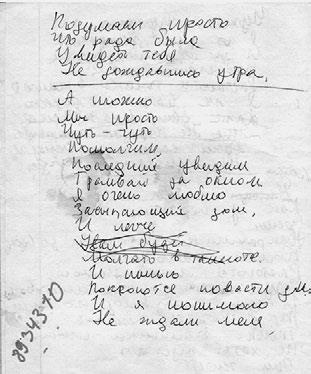 Подумаем просто
Что рада была
Увидеть тебя
Не дождавшись утра.
А можно
Мы просто
Чуть-чуть
Помолчим,
Последний увидим
Трамвай за окном
Я очень люблю
Засыпающий дом,
И легче
Нам будет
Молчать в темноте.
И пылью
Покроются повести дня
И я мимо
Не ждали меня
8934370